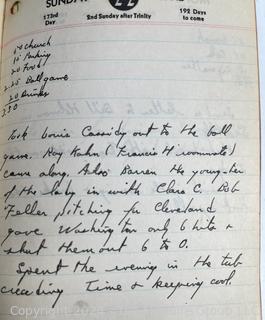 SUNDAY 22
173rd Day 2nd Sunday after Trinity 192 Days to come
Church
Parking
Food
Ball game
Drinks
Took Doris Cassidy out to the ball
game. Roy Kahn (Francis H roommate)
came along. Also Barren the youngster
of the lady in with Clara C. Bob
Feller pitching for Cleveland
gave Washington only 6 hits &
shut them out 6 to 0.
Spent the evening in the tub
reading Time & keeping cool.